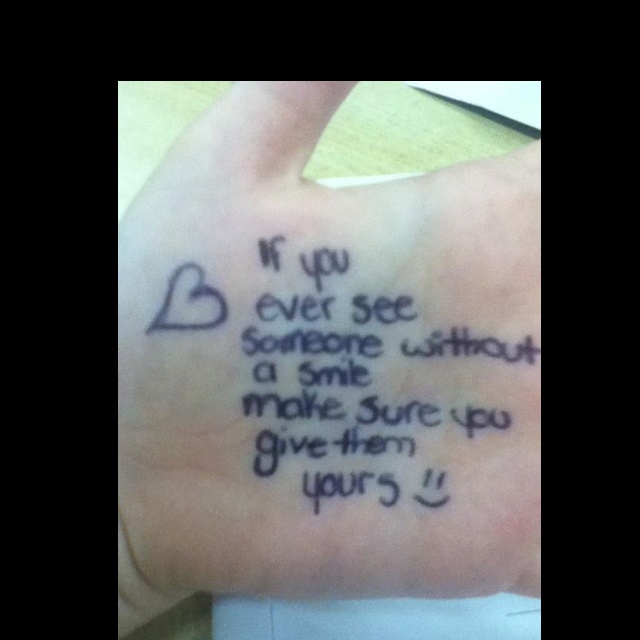 If you
ever see
someone without
a smile
make sure you
give them
yours